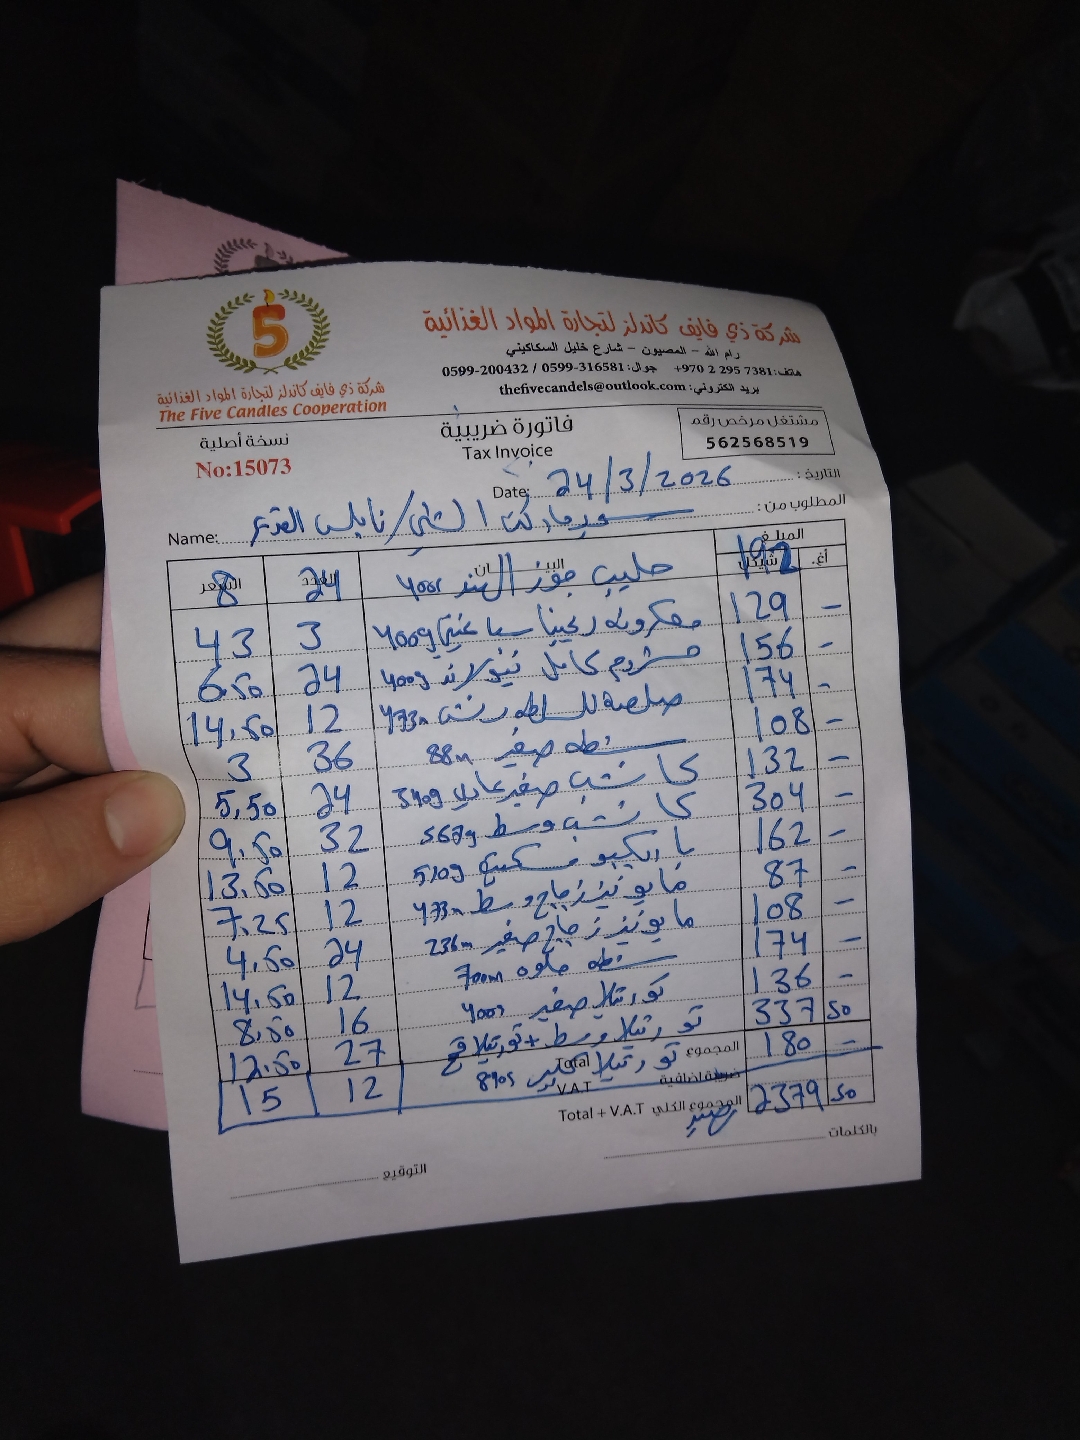 شركة ذي فايف كاندلز لتجارة المواد الغذائية
رام الله - المصيون - شارع خليل السكاكيني
هاتف: +970 2 295 7381 جوال: 0599-316581 / 0599-200432
بريد الكتروني: thefivecandels@outlook.com
5
شركة ذي فايف كاندلز لتجارة المواد الغذائية
The Five Candles Cooperation
مشتغل مرخص رقم
562568519
فاتورة ضريبية
Tax Invoice
نسخة أصلية
No:15073
التاريخ: 24/3/2026 Date:
المطلوب من: سوبرماركت الشني/نابلس Name:
المبلغ البيان العدد السعر
أغ. شيكل
192 حليب جوز الهند 400г 24 8
129 - معكرونة 400g 3 43
156 - مشروم كامل 400g 24 6.50
174 - صلصة 473m 12 14.50
108 - شطه صغير 88m 36 3
132 - كاتشب صغير عادي 340g 24 5,50
304 - كاتشب وسط 567g 32 9.50
162 - باربكيو 510g 12 13.50
87 - مايونيز زجاج وسط 473m 12 7.25
108 - مايونيز زجاج صغير 236m 24 4.50
174 - شطه حلوه 700m 12 14.50
136 - تورتيلا صغير 400g 16 8.50
337 50 تورتيلا وسط + تورتيلا قمح 27 12.50
180 - تورتيلا كبير 890g 12 15
المجموع Total
ضريبة إضافية V.A.T
2379 50 المجموع الكلي Total + V.A.T
بالكلمات
التوقيع